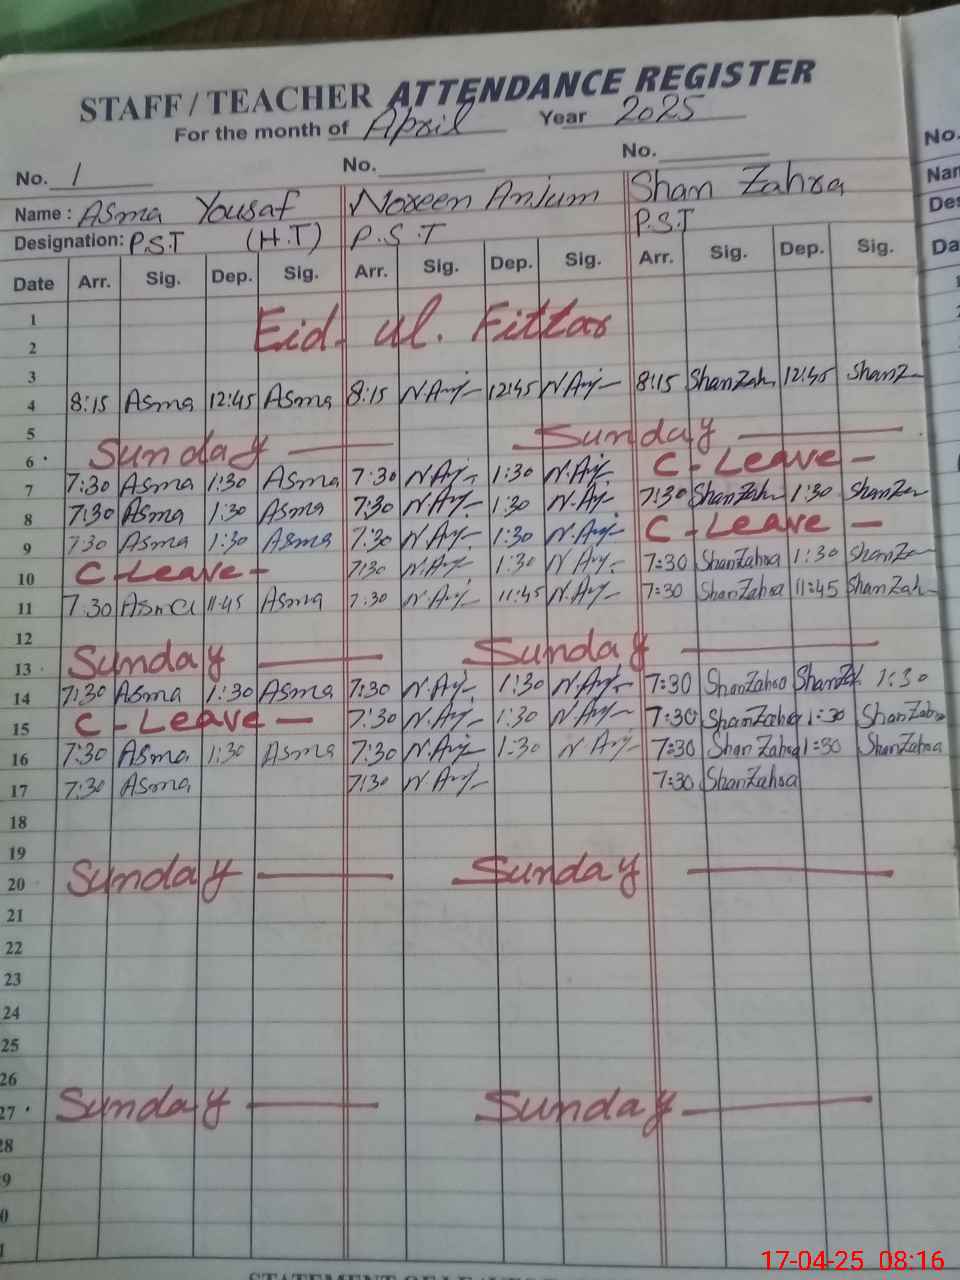 STAFF / TEACHER ATTENDANCE REGISTER
For the month of April Year 2025
No. 1 No. No.
Name : Asma Yousaf Noreen Anjum Shan Zahra
Designation: P.S.T (H.T) P.S.T P.S.T
Date Arr. Sig. Dep. Sig. Arr. Sig. Dep. Sig. Arr. Sig. Dep. Sig.
1
2 Eid. ul. Fittar
3
4 8:15 Asma 12:45 Asma 8:15 N.Anj 12:45 N.Anj 8:15 ShanZah 12:45 ShanZ
5
6 Sunday Sunday
7 7:30 Asma 1:30 Asma 7:30 N.Anj 1:30 N.Anj C-Leave-
8 7:30 Asma 1:30 Asma 7:30 N.Anj 1:30 N.Anj 7:30 ShanZah 1:30 ShanZa
9 730 Asma 1:30 Asma 7:30 N.Anj 1:30 N.Anj C-Leave-
10 C-Leave- 7:30 N.Anj 1:30 N.Anj 7:30 ShanZahra 1:30 ShanZa
11 7.30 Asma 11:45 Asma 7:30 N.Anj 11:45 N.Anj 7:30 ShanZahra 11:45 ShanZah
12
13 Sunday Sunday
14 7:30 Asma 1:30 Asma 7:30 N.Anj 1:30 N.Anj 7:30 ShanZahra ShanZah 1:30
15 C-Leave- 7:30 N.Anj 1:30 N.Anj 7:30 ShanZahra 1:30 ShanZahra
16 7:30 Asma 1:30 Asma 7:30 N.Anj 1:30 N.Anj 7:30 ShanZahra 1:30 ShanZahra
17 7:30 Asma 7:30 N.Anj 7:30 ShanZahra
18
19
20 Sunday Sunday
21
22
23
24
25
26
27 Sunday Sunday
28
9
0
1
No.
Nam
Des
Da
17-04-25 08:16